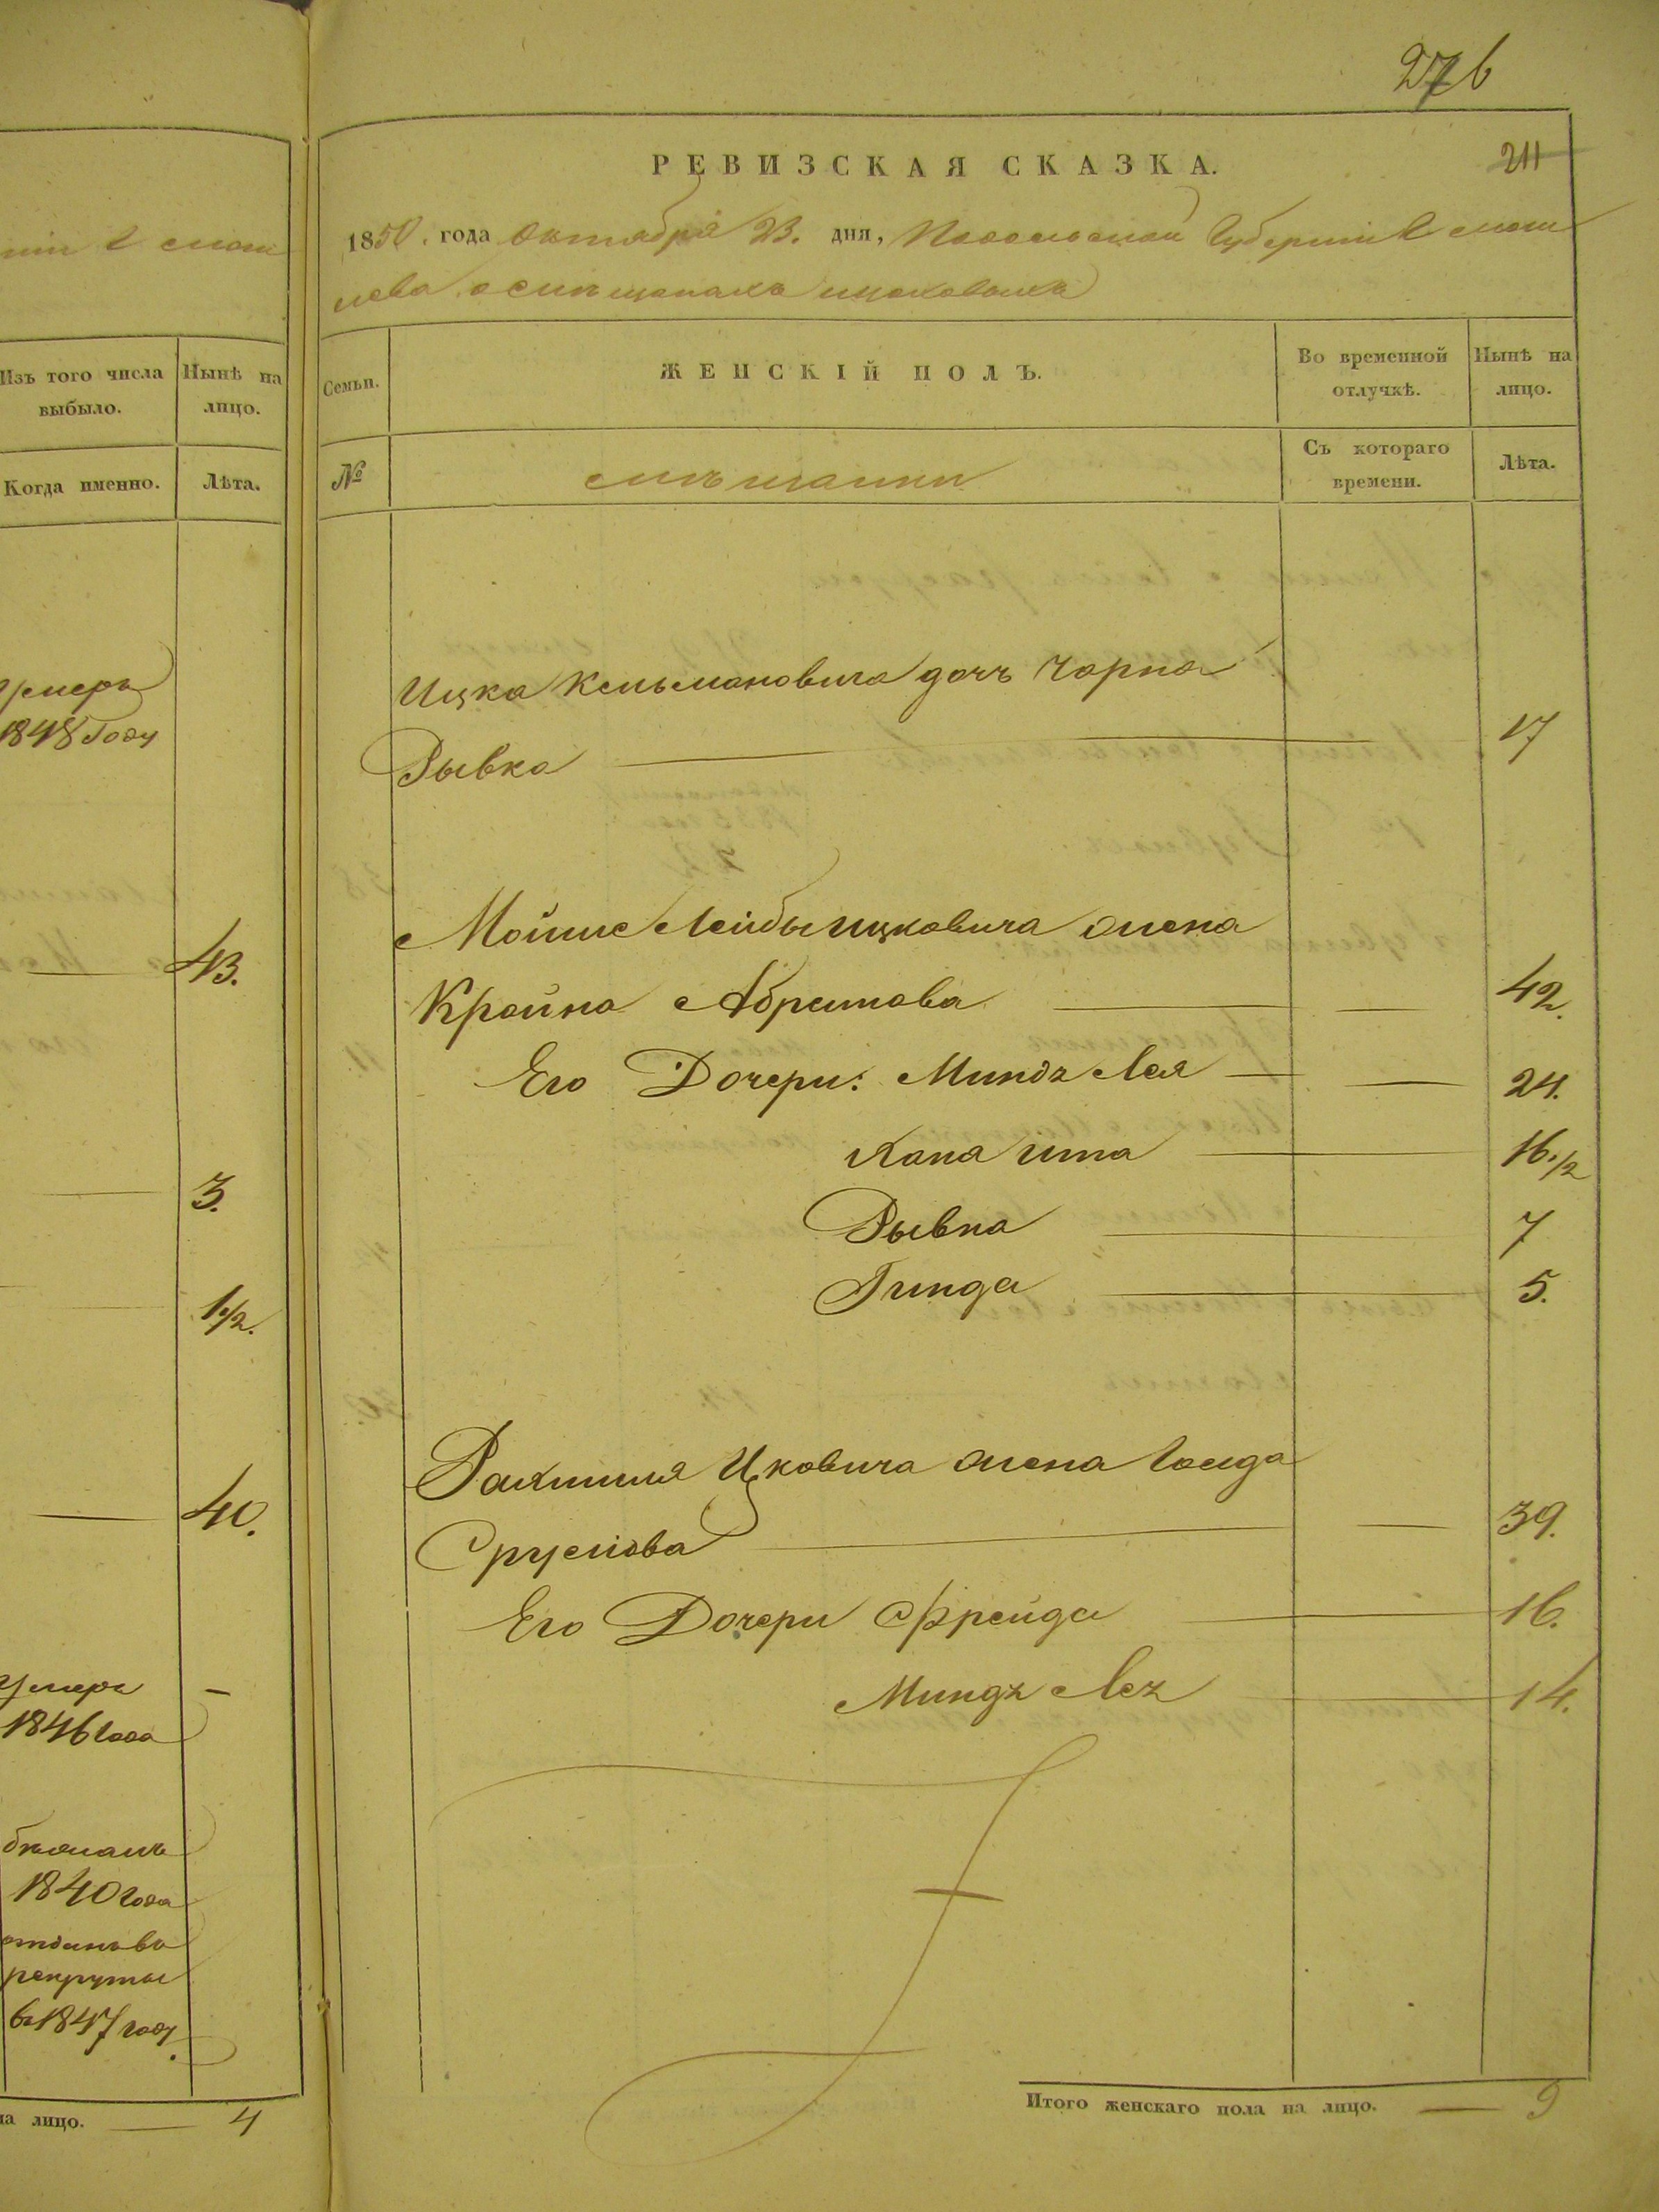 276
РЕВИЗСКАЯ СКАЗКА.
211
1850. года Октября 23. дня, Подольской Губернии
мѣщанахъ
Изъ того числа выбыло.
Нынѣ на лицо.
Когда именно.
Лѣта.
Умеръ
1848 Году
43.
3.
1 1/2.
40.
Умеръ —
1846 года
1840 года
рекруты
въ 1847 году.
на лицо. — 4
Семьи.
ЖЕНСКІЙ ПОЛЪ.
Во временной отлучкѣ.
Нынѣ на лицо.
№
мѣщанки
Съ котораго времени.
Лѣта.
Ицка Кельмановича дочь Чарна
Рывка — 17
Мошке Лейбы Ицковича жена
Крейна Абрамова — 42.
Его Дочери: Миндя Лея — 24.
Хана Ита — 16 1/2
Рывка — 7
Гинда — 5.
Рахмиля Ицковича жена
Сруслова — 39.
Его Дочери Фрейда — 16.
Миндя Лея — 14.
Итого женскаго пола на лицо. — 9